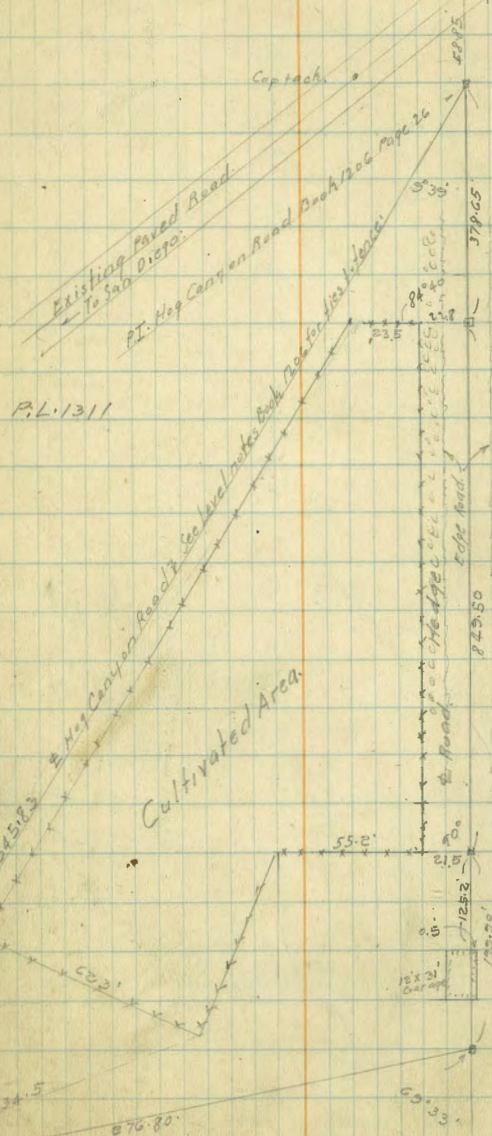 58.85'
Cap tack.
Existing Paved Road.
← To San Diego.
P.I. Hog Canyon Road Book 1206 Page 26
378.65'
84°
23.5
P.L. 1311
℄ Hog Canyon Road & See Level notes Book 1206 for ties to fence.
Hedge
Edge Road.
849.50
℄ Road
Cultivated Area.
545.83
55.2'
90°
21.5
125.2'
0.5
12' x 31'
Garage
62.3'
34.5
876.80.
69° 33'